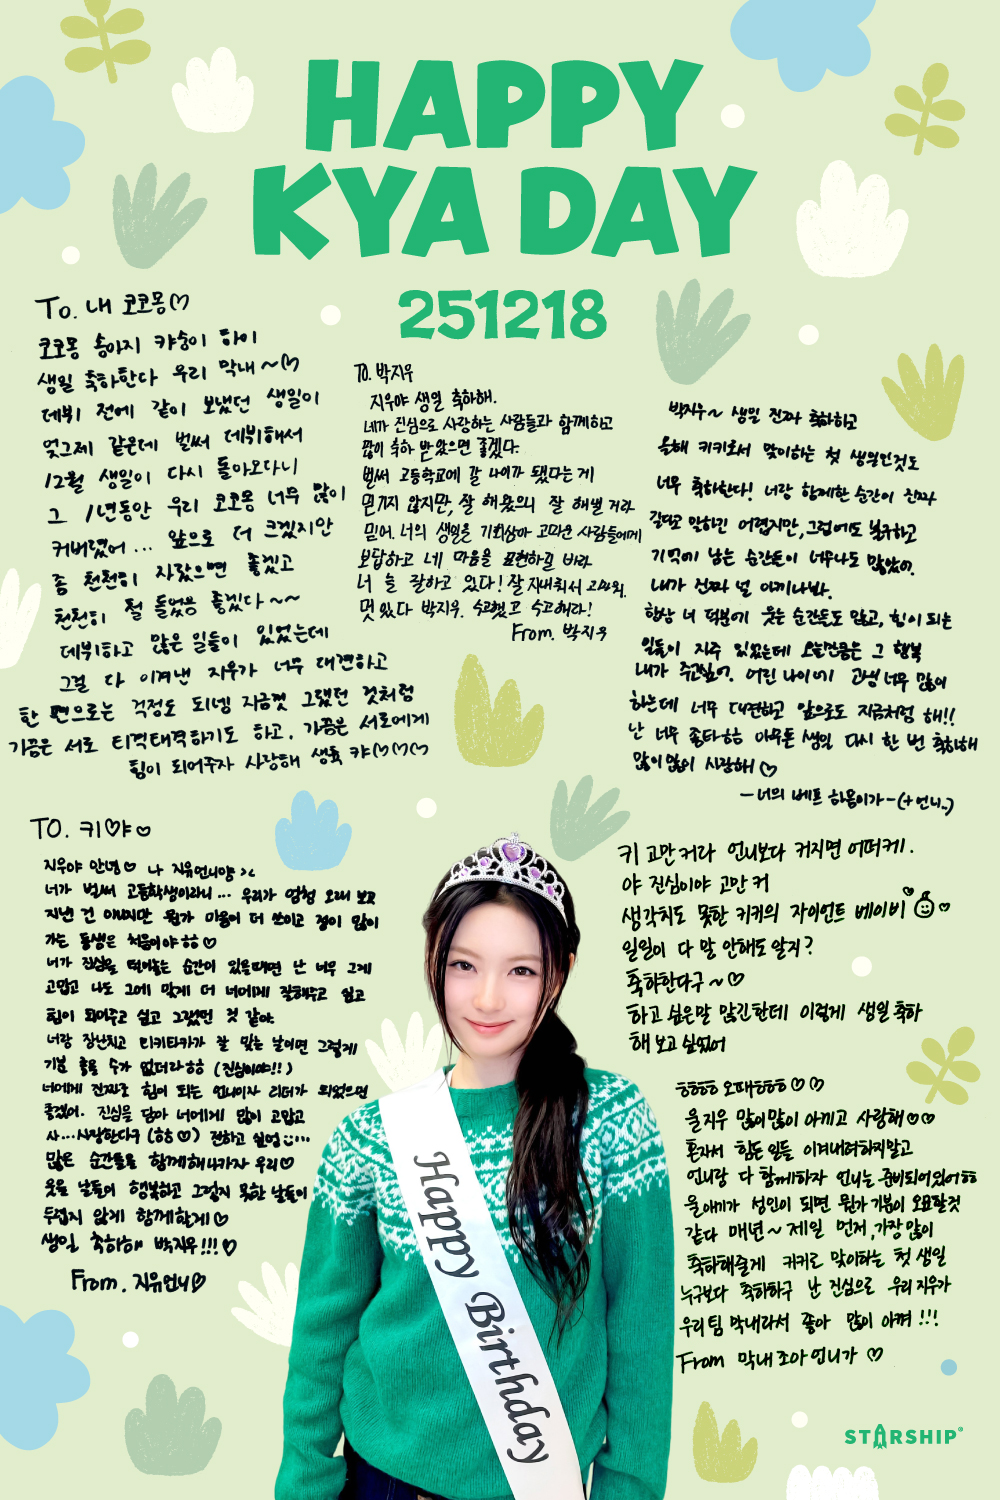 HAPPY
KYA DAY
251218
To. 내 코코몽♡
코코몽 송아지 캬송이 하이
생일 축하한다 우리 막내~♡
데뷔 전에 같이 보냈던 생일이
엊그제 같은데 벌써 데뷔해서
12월 생일이 다시 돌아오다니
그 1년동안 우리 코코몽 너무 많이
커버렸어... 앞으로 더 크겠지만
좀 천천히 자랐으면 좋겠고
천천히 철 들었음 좋겠다~~
데뷔하고 많은 일들이 있었는데
그걸 다 이겨낸 지우가 너무 대견하고
한 편으로는 걱정도 되넹 지금껏 그랬던 것처럼
가끔은 서로 티격태격하기도 하고, 가끔은 서로에게
힘이 되어주자 사랑해 생축 캬♡♡♡
To. 박지우
지우야 생일 축하해.
네가 진심으로 사랑하는 사람들과 함께하고
많이 축하 받았으면 좋겠다.
벌써 고등학교에 갈 나이가 됐다는 게
믿기지 않지만, 잘 해왔으니 잘 해낼 거라
믿어. 너의 생일을 기회삼아 고마운 사람들에게
보답하고 네 마음을 표현하길 바라
너 늘 잘하고 있다! 잘 지내줘서 고마워.
멋있다 박지우. 수고했고 수고해라!
From. 박지우
박지우~ 생일 진짜 축하하고
올해 키키로서 맞이하는 첫 생일인것도
너무 축하한다! 너랑 함께한 순간이 진짜
길다고 말하긴 어렵지만, 그럼에도 불구하고
기억에 남는 순간들이 너무나도 많았어.
내가 진짜 널 아끼나봐.
항상 너 덕분에 웃는 순간들도 많고, 힘이 되는
일들이 자주 있었는데 오늘만큼은 그 행복
내가 주고싶어. 어린 나이에 고생 너무 많이
하는데 너무 대견하고 앞으로도 지금처럼 해!!
난 너무 좋다ㅎㅎ 아무튼 생일 다시 한 번 축하해
많이 많이 사랑해♡
-너의 베프 하음이가-(+언니..)
TO. 키♡야♡
지우야 안녕♡ 나 지유언니양><
너가 벌써 고등학생이라니... 우리가 엄청 오래 보고
지낸 건 아니지만 뭔가 마음이 더 쓰이고 정이 많이
가는 동생은 처음이야ㅎㅎ♡
너가 진심을 털어놓는 순간이 있을때면 난 너무 그게
고맙고 나도 그에 맞게 더 너에게 잘해주고 싶고
힘이 되어주고 싶고 그랬던 것 같아.
너랑 장난치고 티키타카가 잘 맞는 날이면 그렇게
기분 좋을 수가 없더라ㅎㅎ (진심이야!!)
너에게 진짜로 힘이 되는 언니이자 리더가 되었으면
좋겠어. 진심을 담아 너에게 많이 고맙고
사...사랑한다구 (ㅎㅎ♡) 전하고 싶엉...
많은 순간들을 함께해나가자 우리♡
웃을 날들이 행복하고 그렇지 못한 날들이
두렵지 않게 함께할게♡
생일 축하해 박지우!!!♡
From. 지유언니♡
키 고만 커라 언니보다 커지면 어떠케.
야 진심이야 고만 커
생각치도 못한 키키의 자이언트 베이비♡
일일이 다 말 안해도 알지?
축하한다구~♡
하고 싶은말 많긴한데 이렇게 생일 축하
해 보고 싶었어
ㅎㅎㅎㅎ 오때ㅎㅎㅎㅎ♡♡
울지우 많이많이 아끼고 사랑해♡♡
혼자서 힘든 일들 이겨내려하지말고
언니랑 다 함께하자 언니는 준비되어있어ㅎㅎ
울애기가 성인이 되면 뭔가 기분이 오묘할것
같다 매년~ 제일 먼저, 가장 많이
축하해줄게 키키로 맞이하는 첫 생일
누구보다 축하하구 난 진심으로 우리 지우가
우리팀 막내라서 좋아 많이 아껴!!!
From 막내 조아 언니가♡
Happy Birthday
STARSHIP